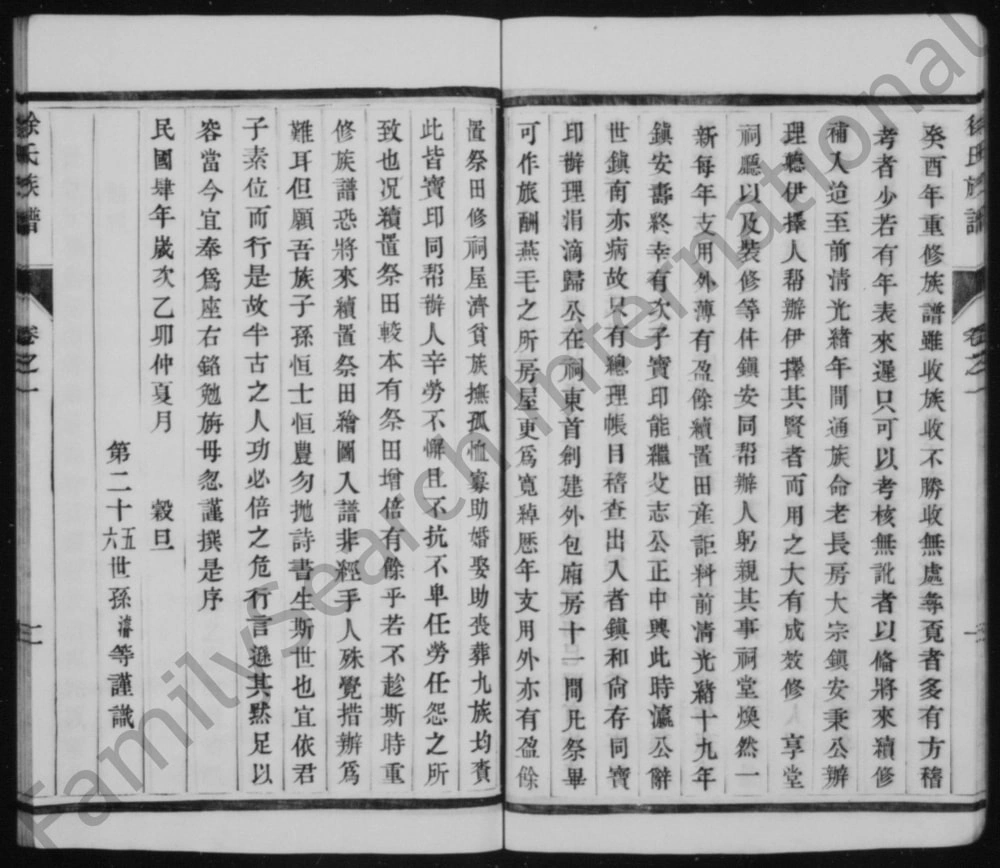 徐氏族譜
卷之一
癸酉年重修族譜雖收族收不勝收無處尋覓者多有方稽
考者少若有年表來遲只可以考核無訛者以備將來續修
補入迨至前清光緒年間通族命老長房大宗鎮安秉公辦
理聽伊擇人帮辦伊擇其賢者而用之大有成效修 享堂
祠廳以及裝修等件鎮安同帮辦人躬親其事祠堂煥然一
新每年支用外薄有盈餘續置田產詎料前清光緒十九年
鎮安壽終幸有次子寶印能繼父志公正中興此時瀛公辭
世鎮南亦病故只有總理帳目稽查出入者鎮和尙存同寶
印辦理涓滴歸公在祠東首創建外包廂房十一間凡祭畢
可作旅酬燕毛之所房屋更爲寬綽歷年支用外亦有盈餘
置祭田修祠屋濟貧族撫孤恤寡助婚娶助喪葬九族均賚
此皆寶印同帮辦人辛勞不懈且不抗不卑任勞任怨之所
致也况續置祭田較本有祭田增倍有餘乎若不趁斯時重
修族譜恐將來續置祭田繪圖入譜非經手人殊覺措辦爲
難耳但願吾族子孫恒士恒農勿拋詩書生斯世也宜依君
子素位而行是故半古之人功必倍之危行言遜其默足以
容當今宜奉爲座右銘勉旃毋忽謹撰是序
民國肆年歲次乙卯仲夏月 穀旦
第二十五六世孫濬等謹識
徐氏族譜
卷之一
二
FamilySearch International